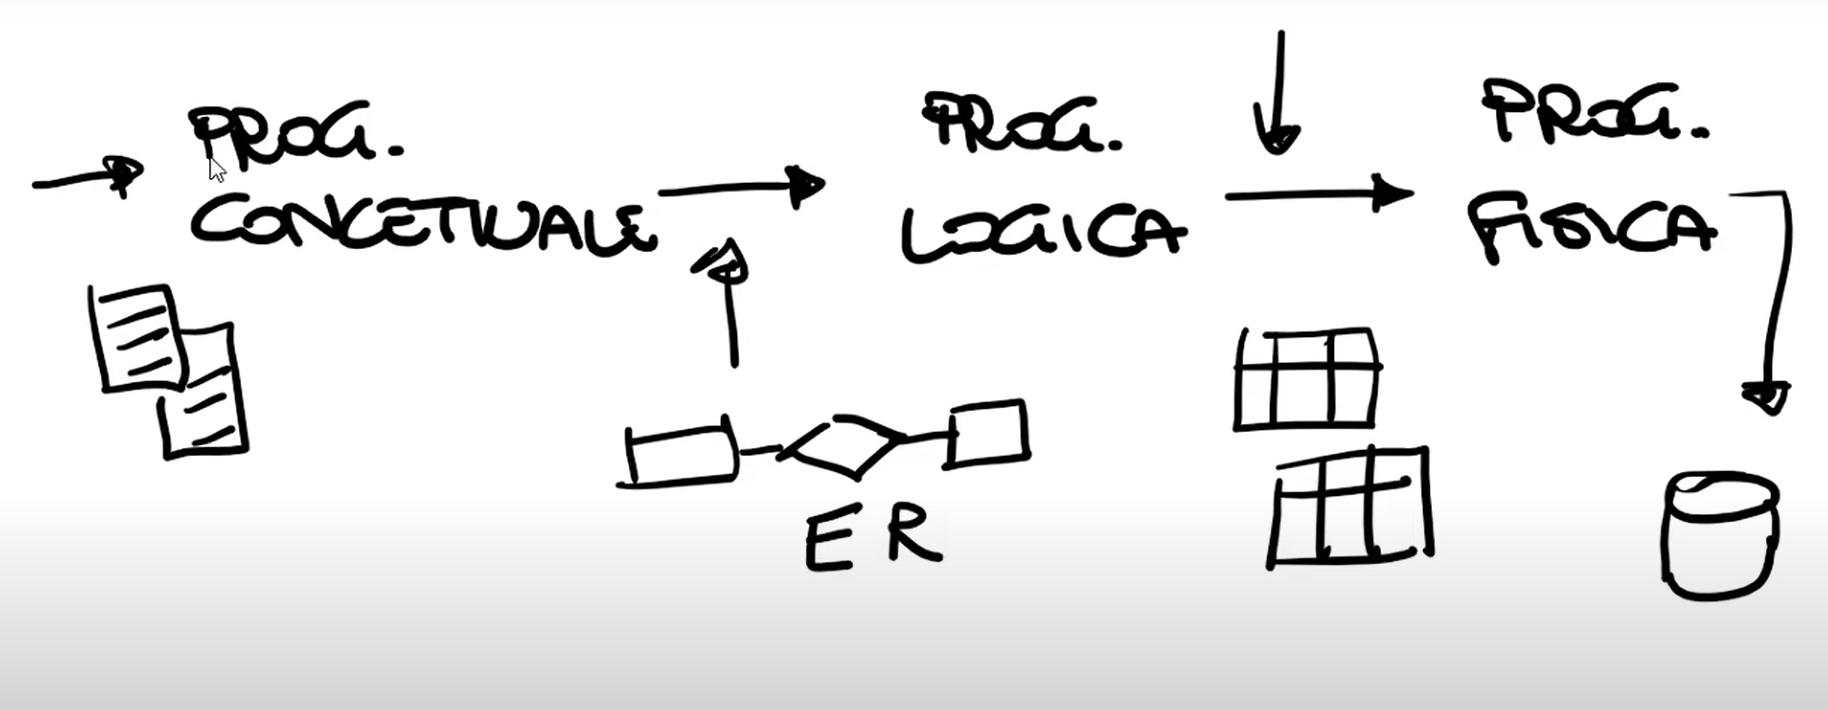 PROG.
CONCETTUALE
PROG.
LOGICA
PROG.
FISICA
ER